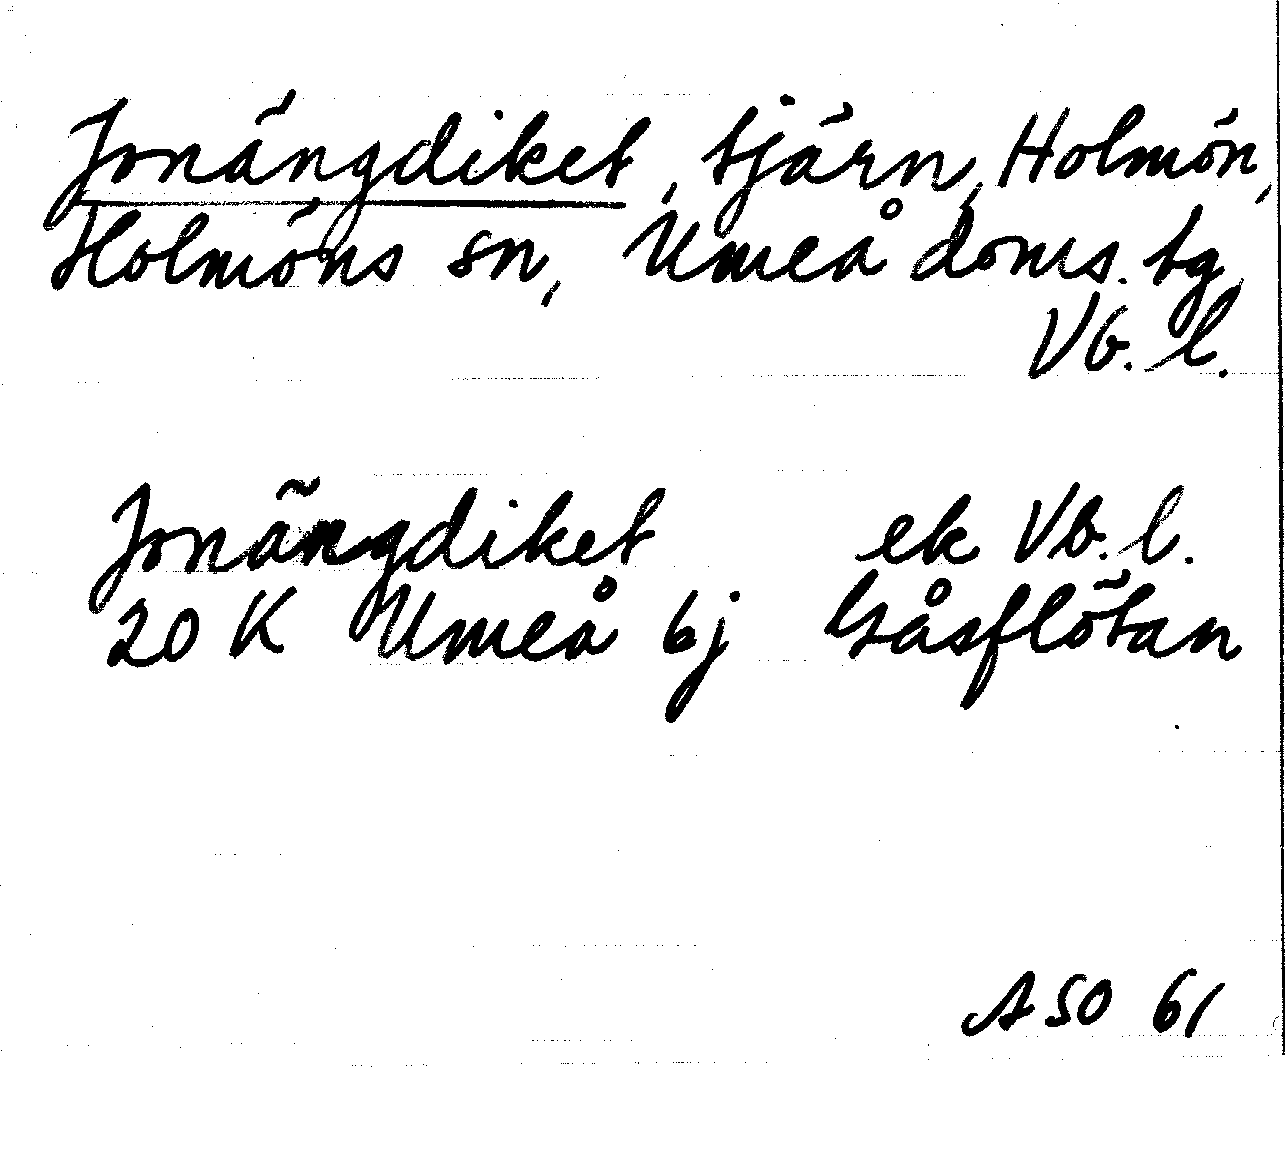 Jonängdiket, tjärn, Holmön,
Holmöns sn, Umeå doms. tg,
Vb. l.
Jonängdiket ek Vb. l.
20 K Umeå 6j Gåsflötan
ASO 61